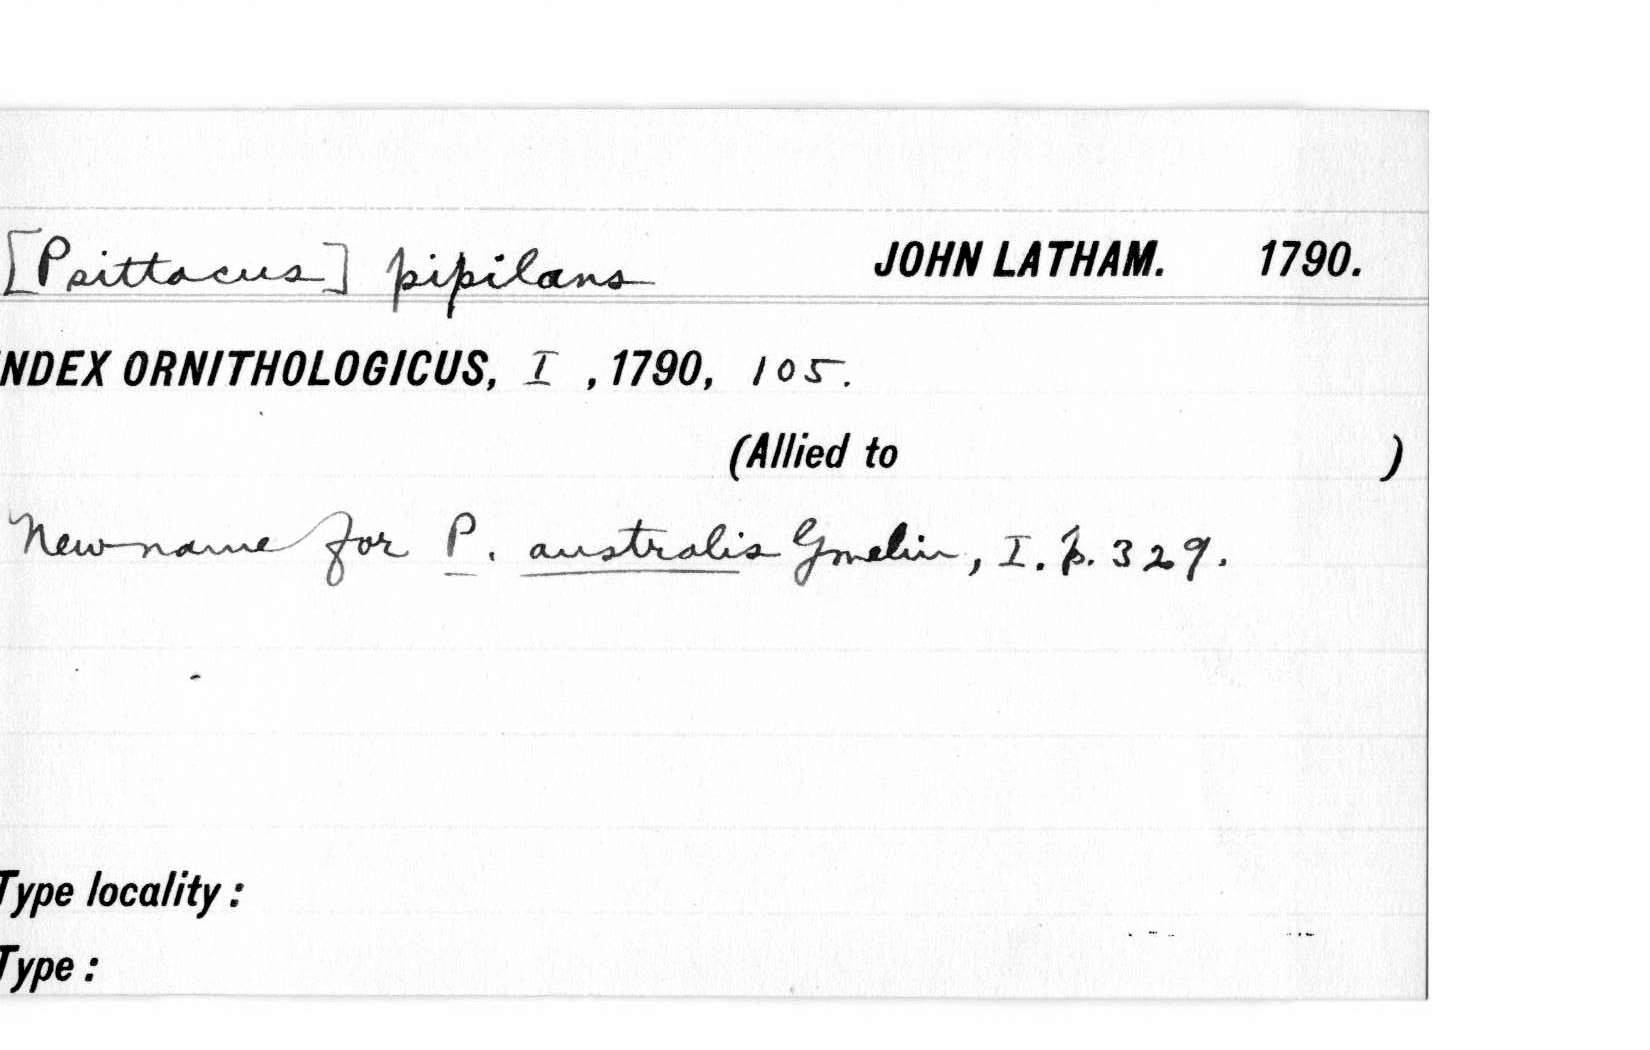 [Psittacus] pipilans JOHN LATHAM. 1790.
NDEX ORNITHOLOGICUS, I , 1790, 105.
(Allied to )
New name for P. australis Gmelin, I. p. 329.
Type locality :
Type :